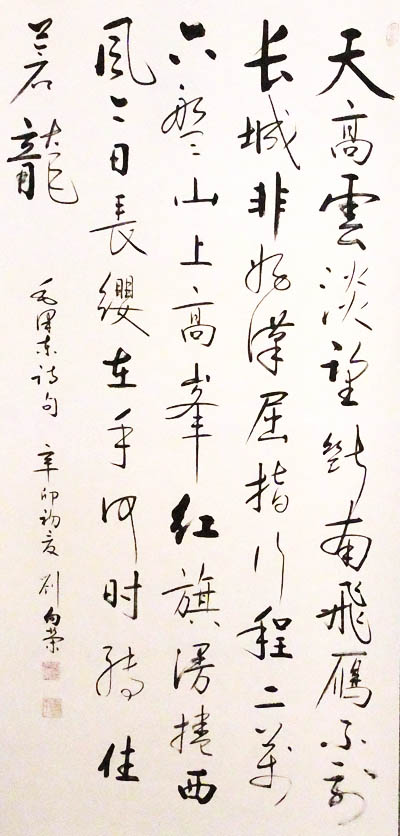 天高雲淡望断南飛雁不到
长城非好漢屈指行程二萬
六盤山上高峯红旗漫捲西
風今日長纓在手何时缚住
蒼龍
毛澤东诗句 辛卯初夏 刘向荣